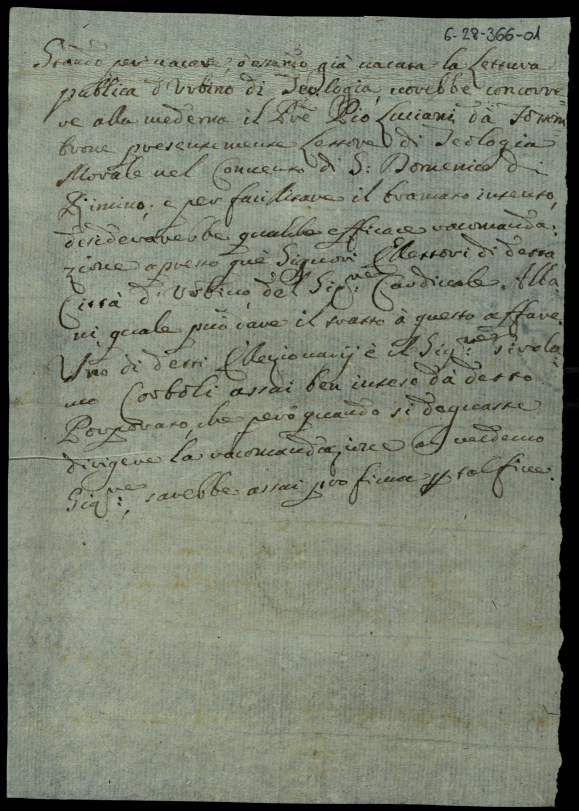 6-28-366-01
Stando per vacare, ò essendo già vacata la Lettura
publica d'Urbino di Teologia, vorebbe concorre-
re alla medema il Pre Pio Luciani da
brone presentemente Lettore di Teologia
Morale nel Convento di S: Domenico di
Rimino, e per facilitare il bramato intento,
desiderarebbe qualche efficace racomanda:
zione apresso que' Signori Elettori di detta
Città d'Urbino del Sigre Cardinale Alba-
ni quale può dare il tratto à questo affare.
Uno di detti Elezionarij è il Sigre: Girola-
mo Corboli assai ben inteso da detto
Porporato, che però quando si degnasse
dirigere la racomandazione al medemo
Sigre:, sarebbe assai proficua p tal fine.